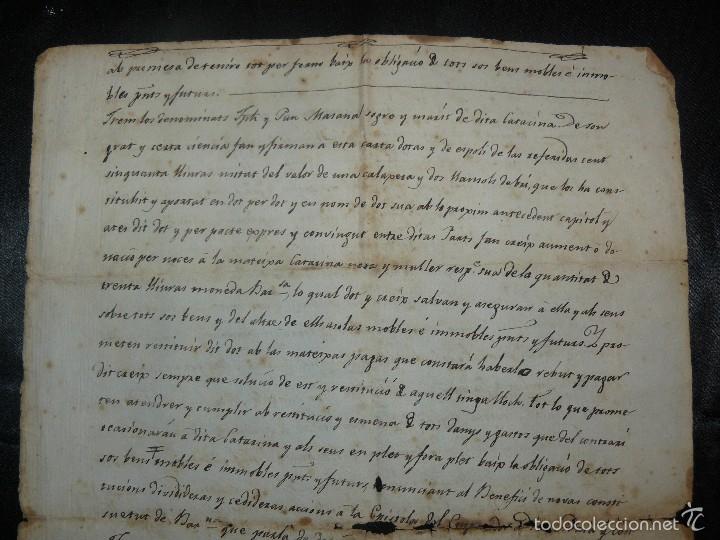 ab promesa de teniro tot per ferm baix la obligació de tots sos bens mobles é immo-
bles pnts y futurs.
Item los denominats y Pua Masana sogre y marit de dita Catarina De son
grat y certa ciencia fan y firman à esta carta dotas y de espoli de las referidas cent
sinquanta lliuras mitat del valor de una calaxera y dos llansols de bri, que los ha cons
titubit y aportat en dot per dot y en nom de dot sua ab lo proxim antecedent capitol y
ates dit dot y per pacte expres y convingut entre ditas Parts fan creix aument o do
nació per noces à la mateixa Catarina nora y muller respe. sua de la quantitat de
trenta lliuras moneda Barsa, lo qual dot y creix salvan y aseguran à ella y als seus
sobre tots sos bens y del altre de ells asolas mobles é immobles pnts y futurs. Y pro
meten restituir dit dot ab las mateixas pagas que constará haberlo rebut y pagar
dit creix sempre que solució de est y restitució de aquell tinga lloch. Tot lo que prome
ten atendrer y cumplir ab restitució y esmena de tots danys y gastos que del contrari
ocasionarán à dita Catarina y als seus en plet y fora plet baix la obligació de tots
sos bens mobles é immobles pnts y futurs, renunciant al Benefici de novas consti
tucions dividideras y cedideras accions à la Epistola del
suetut de Barna que parla de
todocoleccion.net